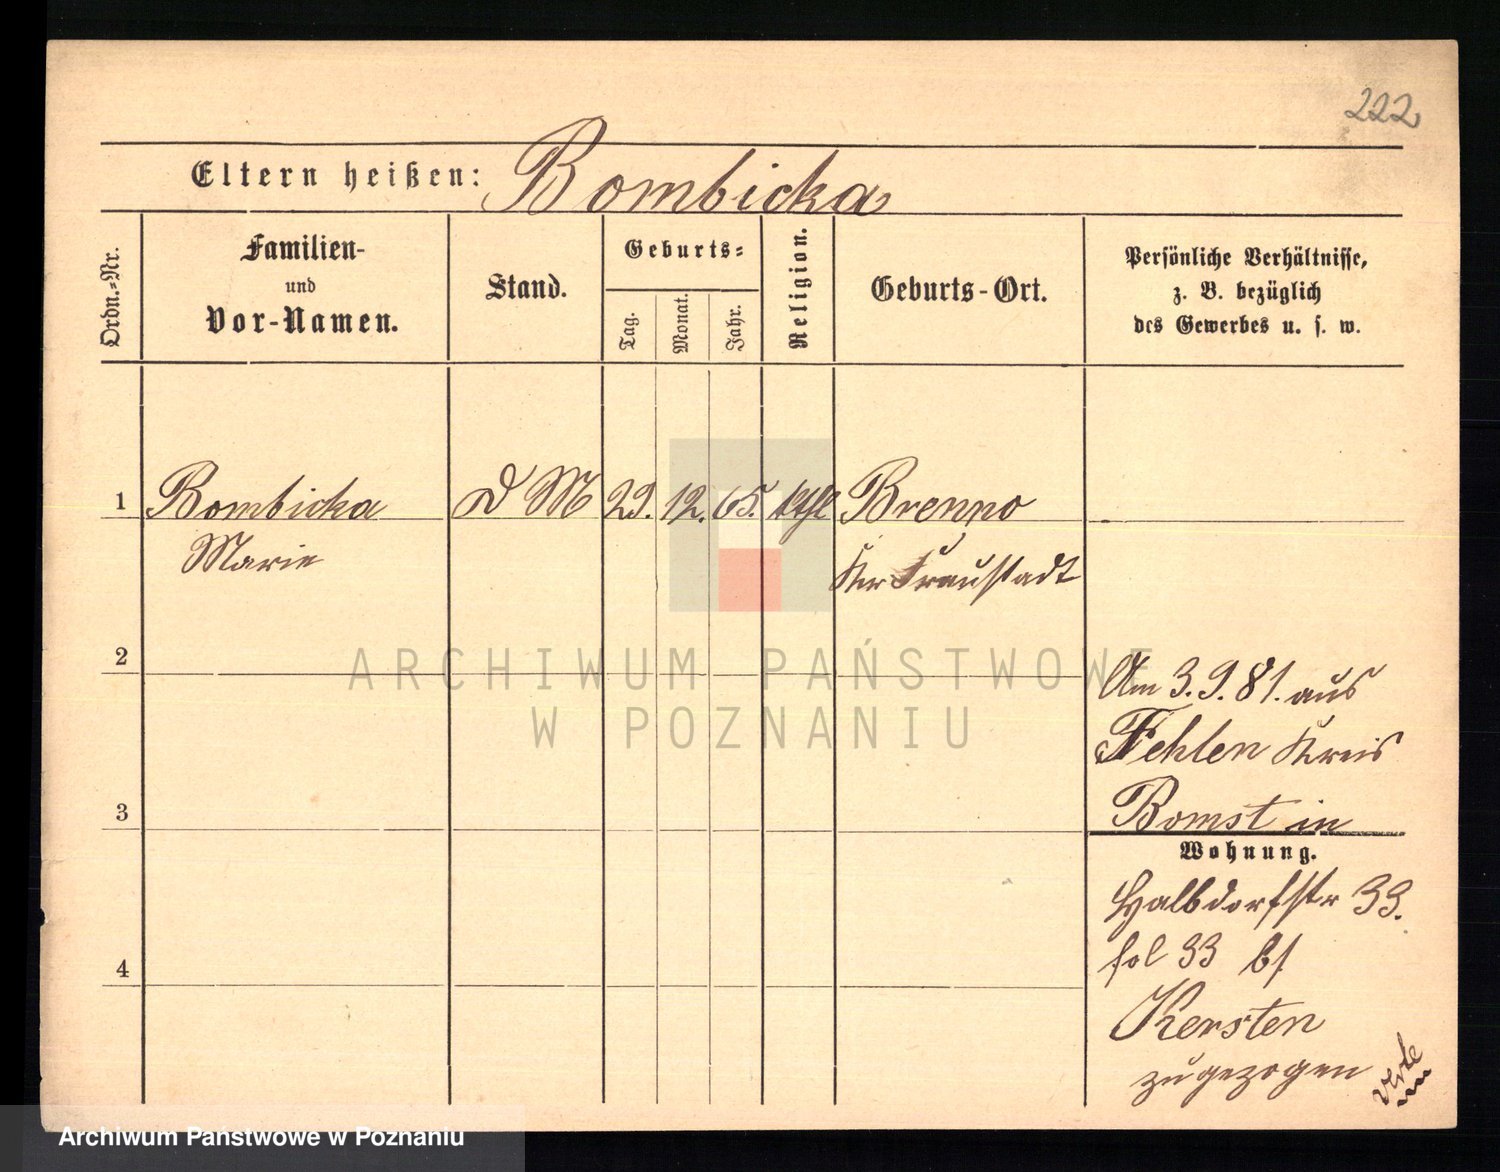 222
Eltern heißen: Bombicka
Ordn.-Nr.
Familien-
und
Vor-Namen.
Stand.
Geburts-
Tag.
Monat.
Jahr.
Religion.
Geburts-Ort.
Persönliche Verhältnisse,
z. B. bezüglich
des Gewerbes u. s. w.
1 Bombicka D M 29. 12. 65. kthl Brenno
Marie Kr Fraustadt
2
Am 3. 9. 81. aus
Fehlen Kreis
3 Bomst in
Wohnung.
Halbdorfstr 33.
fol 33 b/
4
Kersten
zugezogen
ARCHIWUM PAŃSTWOWE
W POZNANIU
Archiwum Państwowe w Poznaniu